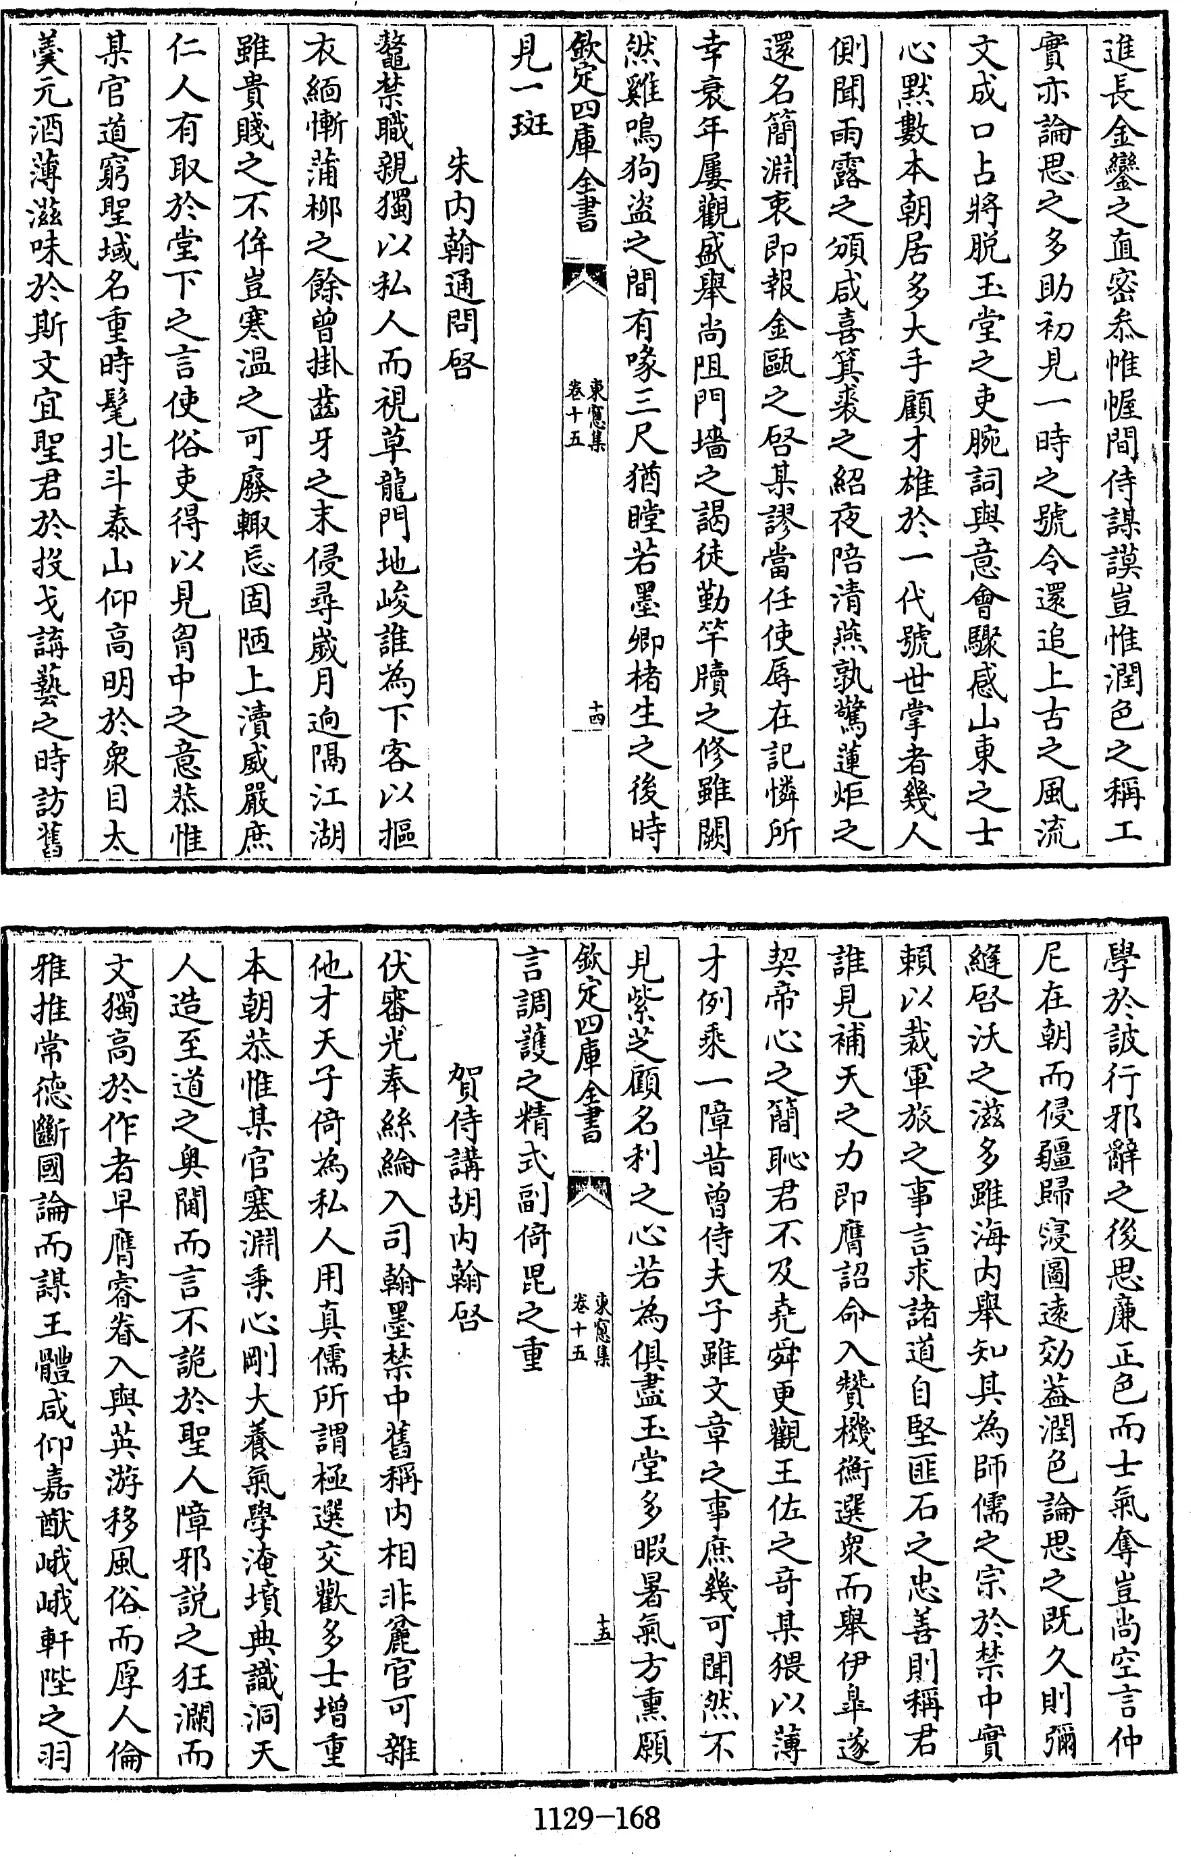 進長金鑾之直密叅惟幄間侍謀謨豈惟潤色之稱工
實亦論思之多助初見一時之號令還追上古之風流
文成口占將脱玉堂之吏腕詞與意會驟感山東之士
心黙數本朝居多大手顧才雄於一代號世掌者幾人
側聞雨露之頒咸喜箕裘之紹夜陪清燕孰驚蓮炬之
還名簡淵衷即報金甌之啓某謬當任使辱在記憐所
幸衰年屢觀盛舉尚阻門墻之謁徒勤竿牘之修雖闕
然雞鳴狗盜之間有喙三尺猶瞠若墨卿楮生之後時
欽定四庫全書
東窻集
卷十五
十四
見一斑
朱内翰通問啓
鼇禁職親獨以私人而視草龍門地峻誰為下客以摳
衣緬慚蒲柳之餘曾掛齒牙之末侵尋嵗月迥隔江湖
雖貴賤之不侔豈寒温之可廢輙忘固陋上瀆威嚴庶
仁人有取於堂下之言使俗吏得以見胷中之意恭惟
某官道窮聖域名重時髦北斗泰山仰高明於衆目太
羮元酒薄滋味於斯文宜聖君於投戈講藝之時訪舊
學於詖行邪辭之後思廉正色而士氣奪豈尚空言仲
尼在朝而侵疆歸寖圖逺効葢潤色論思之既久則彌
縫啓沃之滋多雖海内舉知其為師儒之宗於禁中實
賴以裁軍旅之事言求諸道自堅匪石之忠善則稱君
誰見補天之力即膺詔命入贊機衡選衆而舉伊臯遂
契帝心之簡恥君不及堯舜更觀王佐之竒某猥以薄
才例乘一障昔曾侍夫子雖文章之事庶幾可聞然不
見紫芝顧名利之心若為俱盡玉堂多暇暑氣方熏願
欽定四庫全書
東窻集
卷十五
十五
言調護之精式副倚毘之重
賀侍講胡内翰啓
伏審光奉絲綸入司翰墨禁中舊稱内相非麄官可雜
他才天子倚為私人用真儒所謂極選交歡多士增重
本朝恭惟某官塞淵秉心剛大養氣學淹墳典識洞天
人造至道之奥閫而言不詭於聖人障邪説之狂瀾而
文獨高於作者早膺睿眷入與英游移風俗而厚人倫
雅推常德斷國論而謀王體咸仰嘉猷峨峨軒陛之羽
1129-168